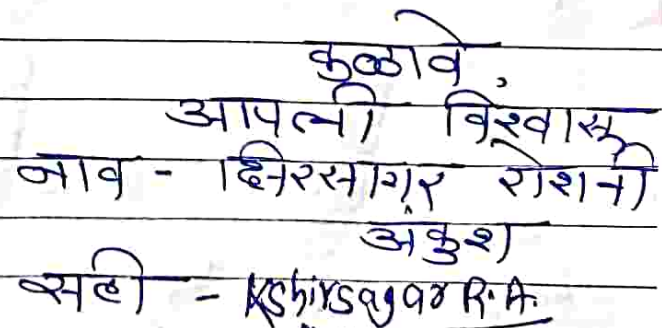 कळावे,
आपली विश्वासू
नाव - क्षिरसागर रोशनी
अंकुश
सही - Kshirsagar R.A.